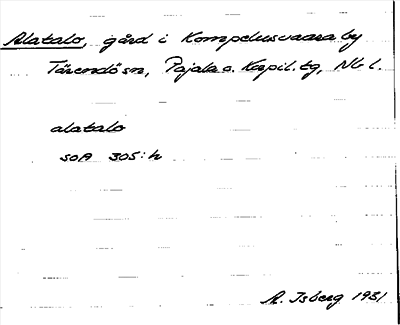 Alatalo, gård i Kompelusvaara by
Tärendö sn, Pajala o. Korpil. tg, Nb l.
alatalo
SOA 305:h
A. Isberg 1931